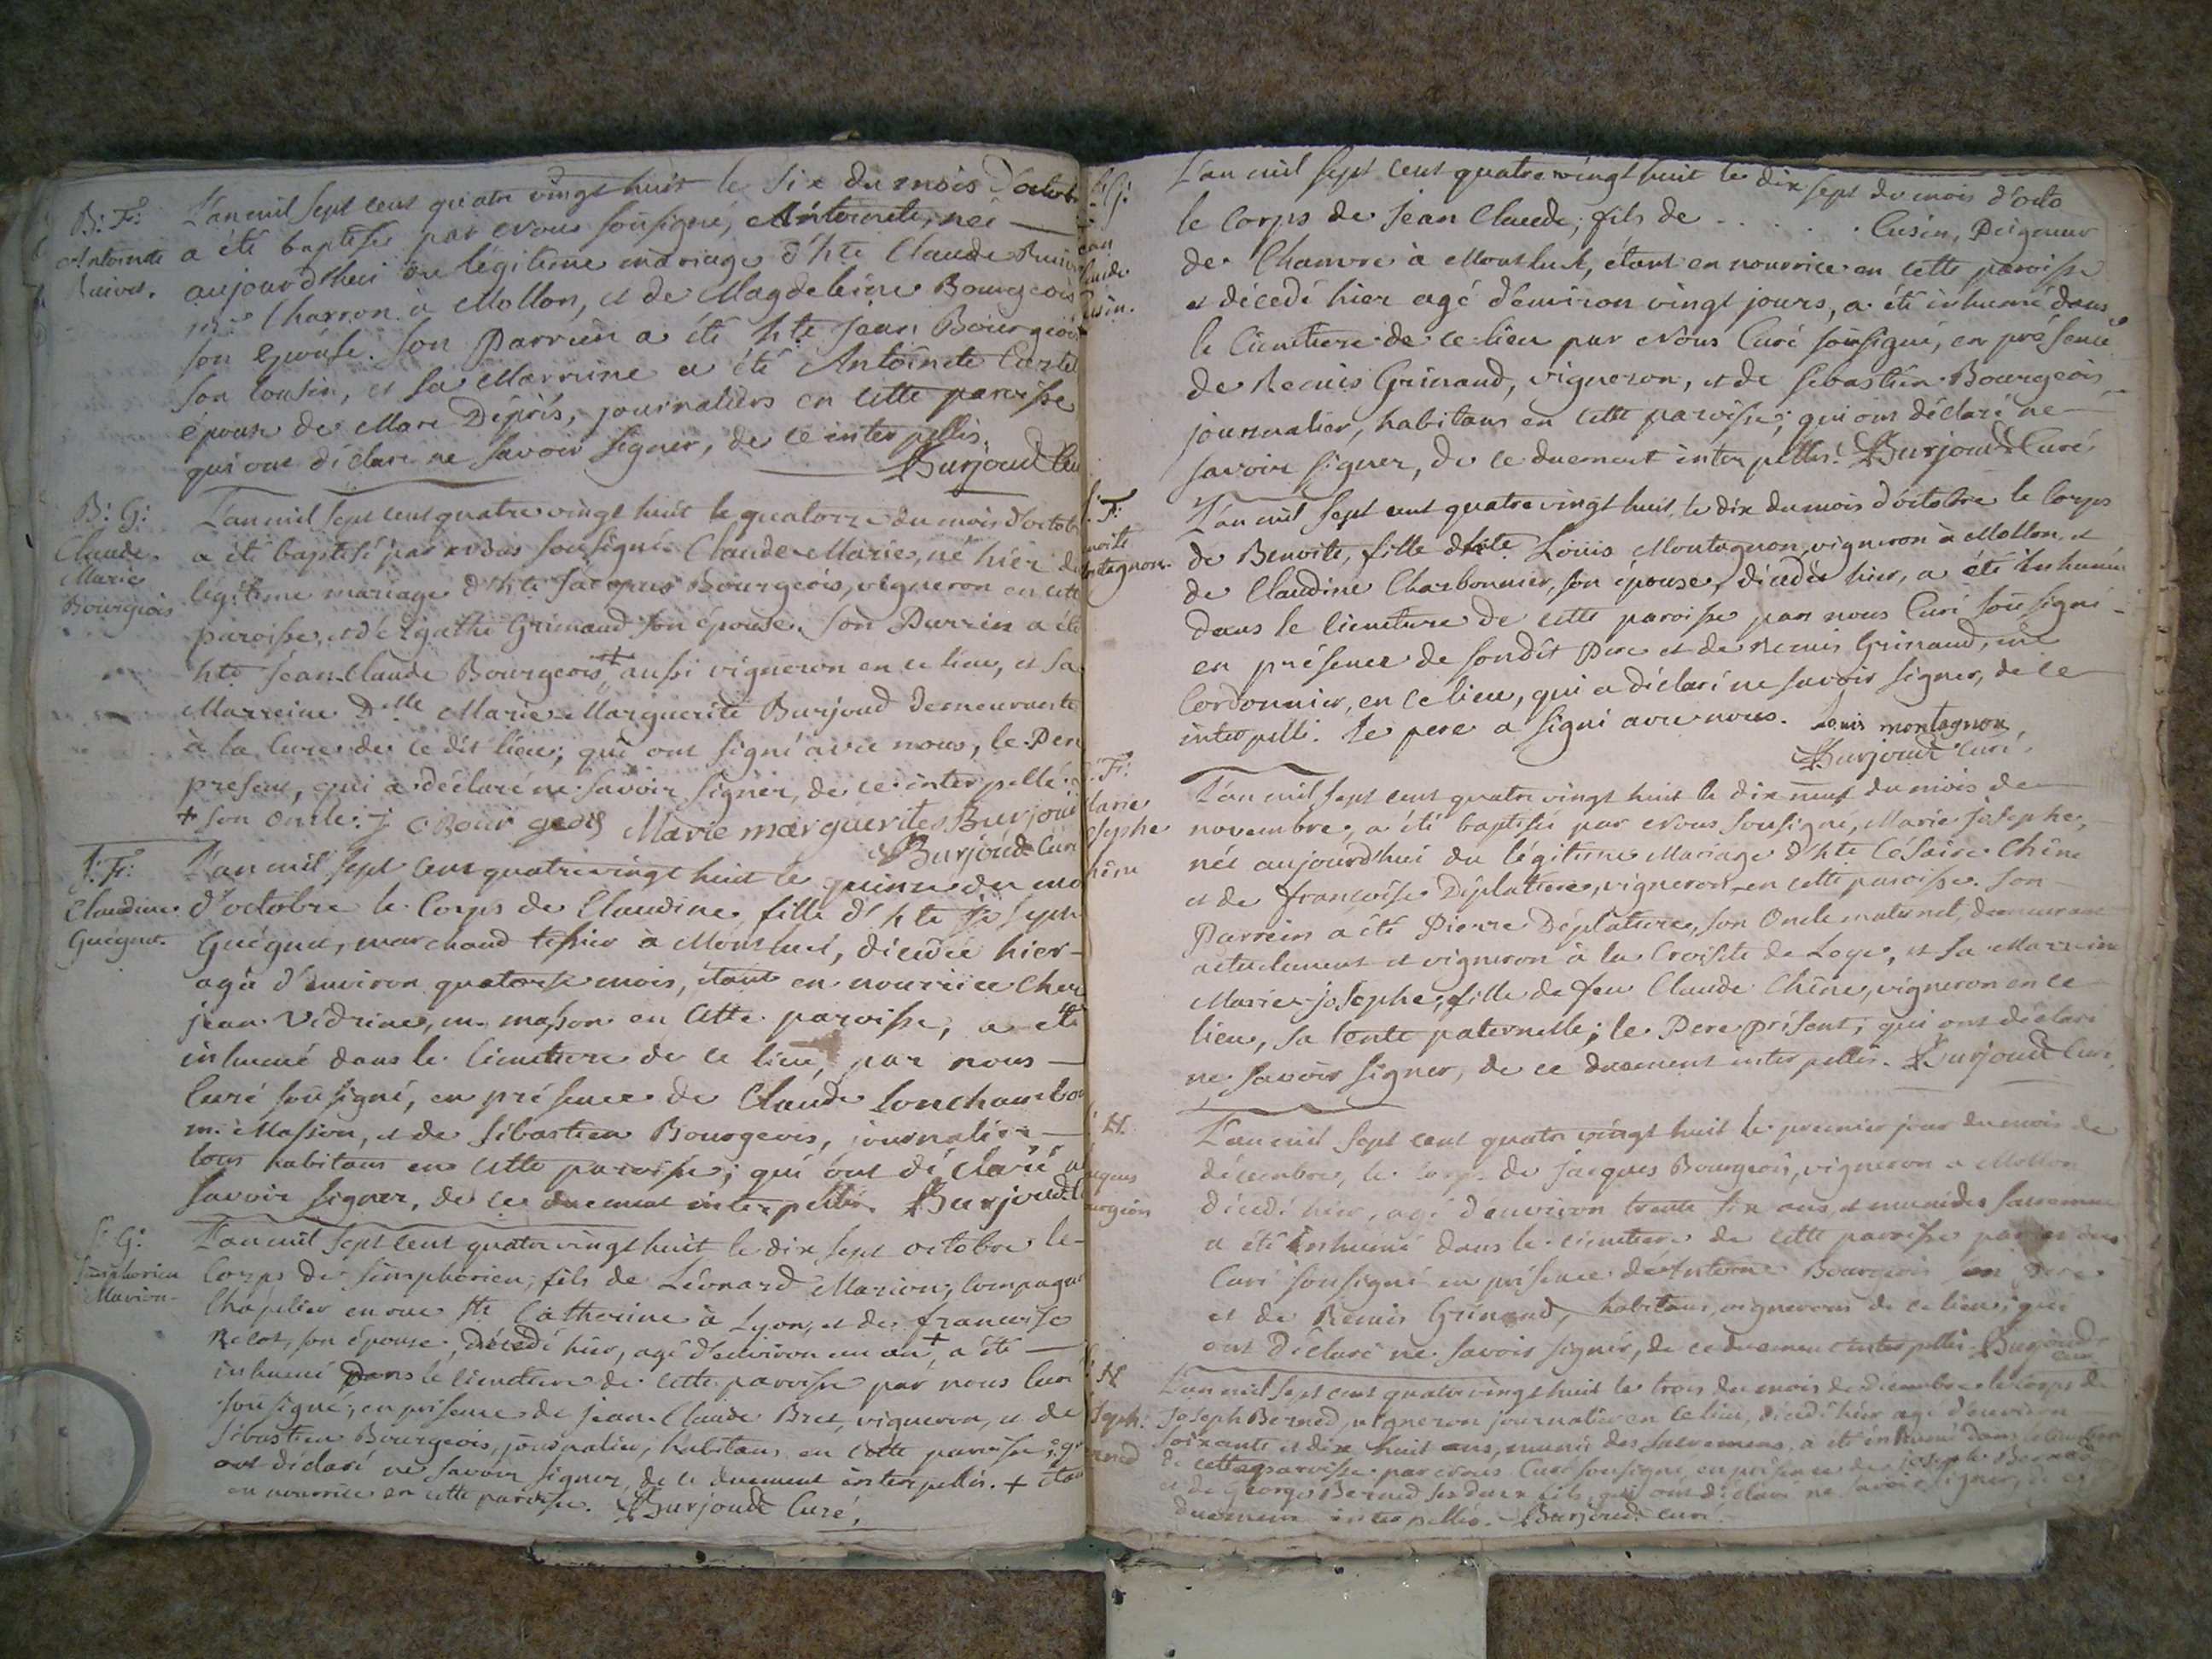 B: F:
Antoinete
L'an mil sept cent quatre vingt huit le six du mois d'octob
a été baptisée par Nous soussigné, Antoinete, née
aujourd'hui du légitime mariage d'hte Claude
Charron à Mollon, et de Magdeleine Bourgeois
son épouse. Son Parrein a été hte Jean Bourgeois
son cousin, et sa Marreine a été Antoinete
épouse de Marc Déprès, journaliers en cette paroisse
qui ont déclaré ne savoir signer, de ce interpellés.
Burjoud Cu
B: G:
Claude
Marie
Bourgeois
L'an mil sept cent quatre vingt huit le quatorze du mois d'octob
a été baptisé par nous soussigné Claude Marie, né hier du
légitime mariage d'hte Jacques Bourgeois, vigneron en cette
paroisse, et d'Agathe Grimaud son épouse. Son Parrein a été
hte Jean Claude Bourgeois + aussi vigneron en ce lieu, et sa
Marreine Dlle Marie Marguerite Burjoud demeurante
à la Cure de ce dit lieu; qui ont signé avec nous, le Pere
present, qui a déclaré ne savoir signer, de ce interpellé.
+ son oncle. j c Bour geois Marie margueritte Burjoud
Burjoud Curé
S: F:
Claudine
Guégnet
L'an mil sept cent quatre vingt huit le quinze du mo
d'octobre le Corps de Claudine, fille d'hte Joseph
Guégnet, marchand à Montluel, décédée hier
agée d'environ quatorze mois, étant en nourrice chez
jean Vedrine, m. masson en cette paroisse, a été
inhumé dans le cimetiere de ce lieu, par nous
Curé soussigné, en présence de Claude Lonchambon
m. Masson, et de Sébastien Bourgeois, journalier
tous habitans en cette paroisse; qui ont déclaré
savoir signer, de ce duement interpellés. Burjoud
S: G:
Simphorien
Marion
L'an mil sept cent quatre vingt huit le dix sept octobre le
Corps de Simphorien, fils de Léonard Marion, Compagn
Chapelier en rue Ste Catherine à Lyon, et de françoise
son épouse, décédé hier, agé d'environ un an +, a été
inhumé dans le cimetiere de cette paroisse par nous Curé
soussigné, en présence de jean Claude Bret, vigneron, et de
Sébastien Bourgeois, journalier, habitans en cette paroisse; qui
ont déclaré ne savoir signer, de ce duement interpellés. + étant
en nourrice en cette paroisse. Burjoud Curé.
: G:
ean
laude
usin.
L'an mil sept cent quatre vingt huit le dix sept du mois d'octo
le Corps de Jean Claude, fils de . . . . . Cusin, Peigneur
de Chanvre à Montluel, étant en nourrice en cette paroisse
et décédé hier agé d'environ vingt jours, a été inhumé dans
le Cimetiere de ce lieu par Nous Curé soussigné, en présence
de Remis Grimaud, vigneron, et de Sébastien Bourgeois,
journalier, habitans en cette paroisse; qui ont déclaré ne
savoir signer, de ce duement interpellés. Burjoud Curé.
: F:
noite
ntagnon.
L'an mil sept cent quatre vingt huit, le dix du mois d'octobre le Corps
de Benoite, fille d'hte Loüis Montagnon, vigneron à Mollon, et
de Claudine Charbonnier, son épouse, décédée hier, a été inhumée
dans le cimetiere de cette paroisse par nous Curé soussigné
en présence de sondit Pere et de Remis Grimaud, m.
Cordonnier, en ce lieu, qui a déclaré ne savoir signer, de ce
interpellé. Le pere a signé avec nous. Louis montagnon
Burjoud Curé.
: F:
Marie
osephe
hêne
L'an mil sept cent quatre vingt huit le dix neuf du mois de
novembre, a été baptisée par Nous soussigné, Marie Josephe,
née aujourd'hui du légitime Mariage d'hte Césaire Chêne
et de françoise Déplatiere, vigneron en cette paroisse. Son
Parrein a été Pierre Déplatiere, son Oncle maternel, demeurant
actuelement et vigneron à la Croisete de Loye, et sa Marreine
Marie josephe, fille de feu Claude Chêne, vigneron en ce
lieu, sa tente paternelle; le Pere présent; qui ont déclaré
ne savoir signer, de ce duement interpellés. Burjoud Curé.
: H.
aques
urgeois
L'an mil sept cent quatre vingt huit le premier jour du mois de
décembre, le Corps de jacques Bourgeois, vigneron à Mollon
décédé hier, agé d'environ trente six ans, et muni des sacremens
a été inhumé dans le cimetiere de cette paroisse par nous
Curé soussigné en présence d'Antoine Bourgeois Pere
et de Remis Grimaud, habitans, vignerons de ce lieu, qui
ont déclaré ne savoir signer, de ce duement interpellés. Burjoud
Curé
: H
oseph
erned
L'an mil sept cent quatre vingt huit le trois du mois de décembre le corps de
Joseph Berned, vigneron journalier en ce lieu, décédé hier agé d'environ
soixante et dix huit ans, munis des sacremens, a été inhumé dans le cimetiere
de cette paroisse par nous Curé soussigné, en présence de joseph Berned
et de George Berned ses deux fils, qui ont déclaré ne savoir signer, de ce
duement interpellés. Burjoud Curé.